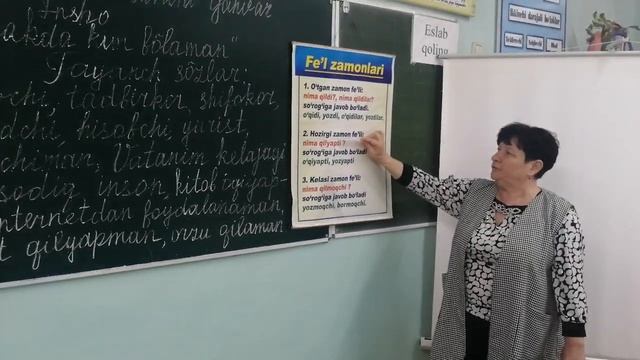 Insho
kim bo'laman"
Tayanch so'zlar:
tadbirkor, shifokor,
hisobchi, yurist,
Vatanim kelajagi
inson, kitob o'qiyap-
internetdan foydalanaman,
qilyapman, orzu qilaman
Fe'l zamonlari
1. O'tgan zamon fe'li:
nima qildi?, nima qildilar?
so'rog'iga javob bo'ladi.
o'qidi, yozdi, o'qidilar, yozdilar.
2. Hozirgi zamon fe'li:
nima qilyapti ?
so'rog'iga javob bo'ladi
o'qiyapti, yozyapti
3. Kelasi zamon fe'li:
nima qilmoqchi ?
so'rog'iga javob bo'ladi
yozmoqchi, bormoqchi.
Eslab
qoling
Ikkinchi darajali bo'laklar